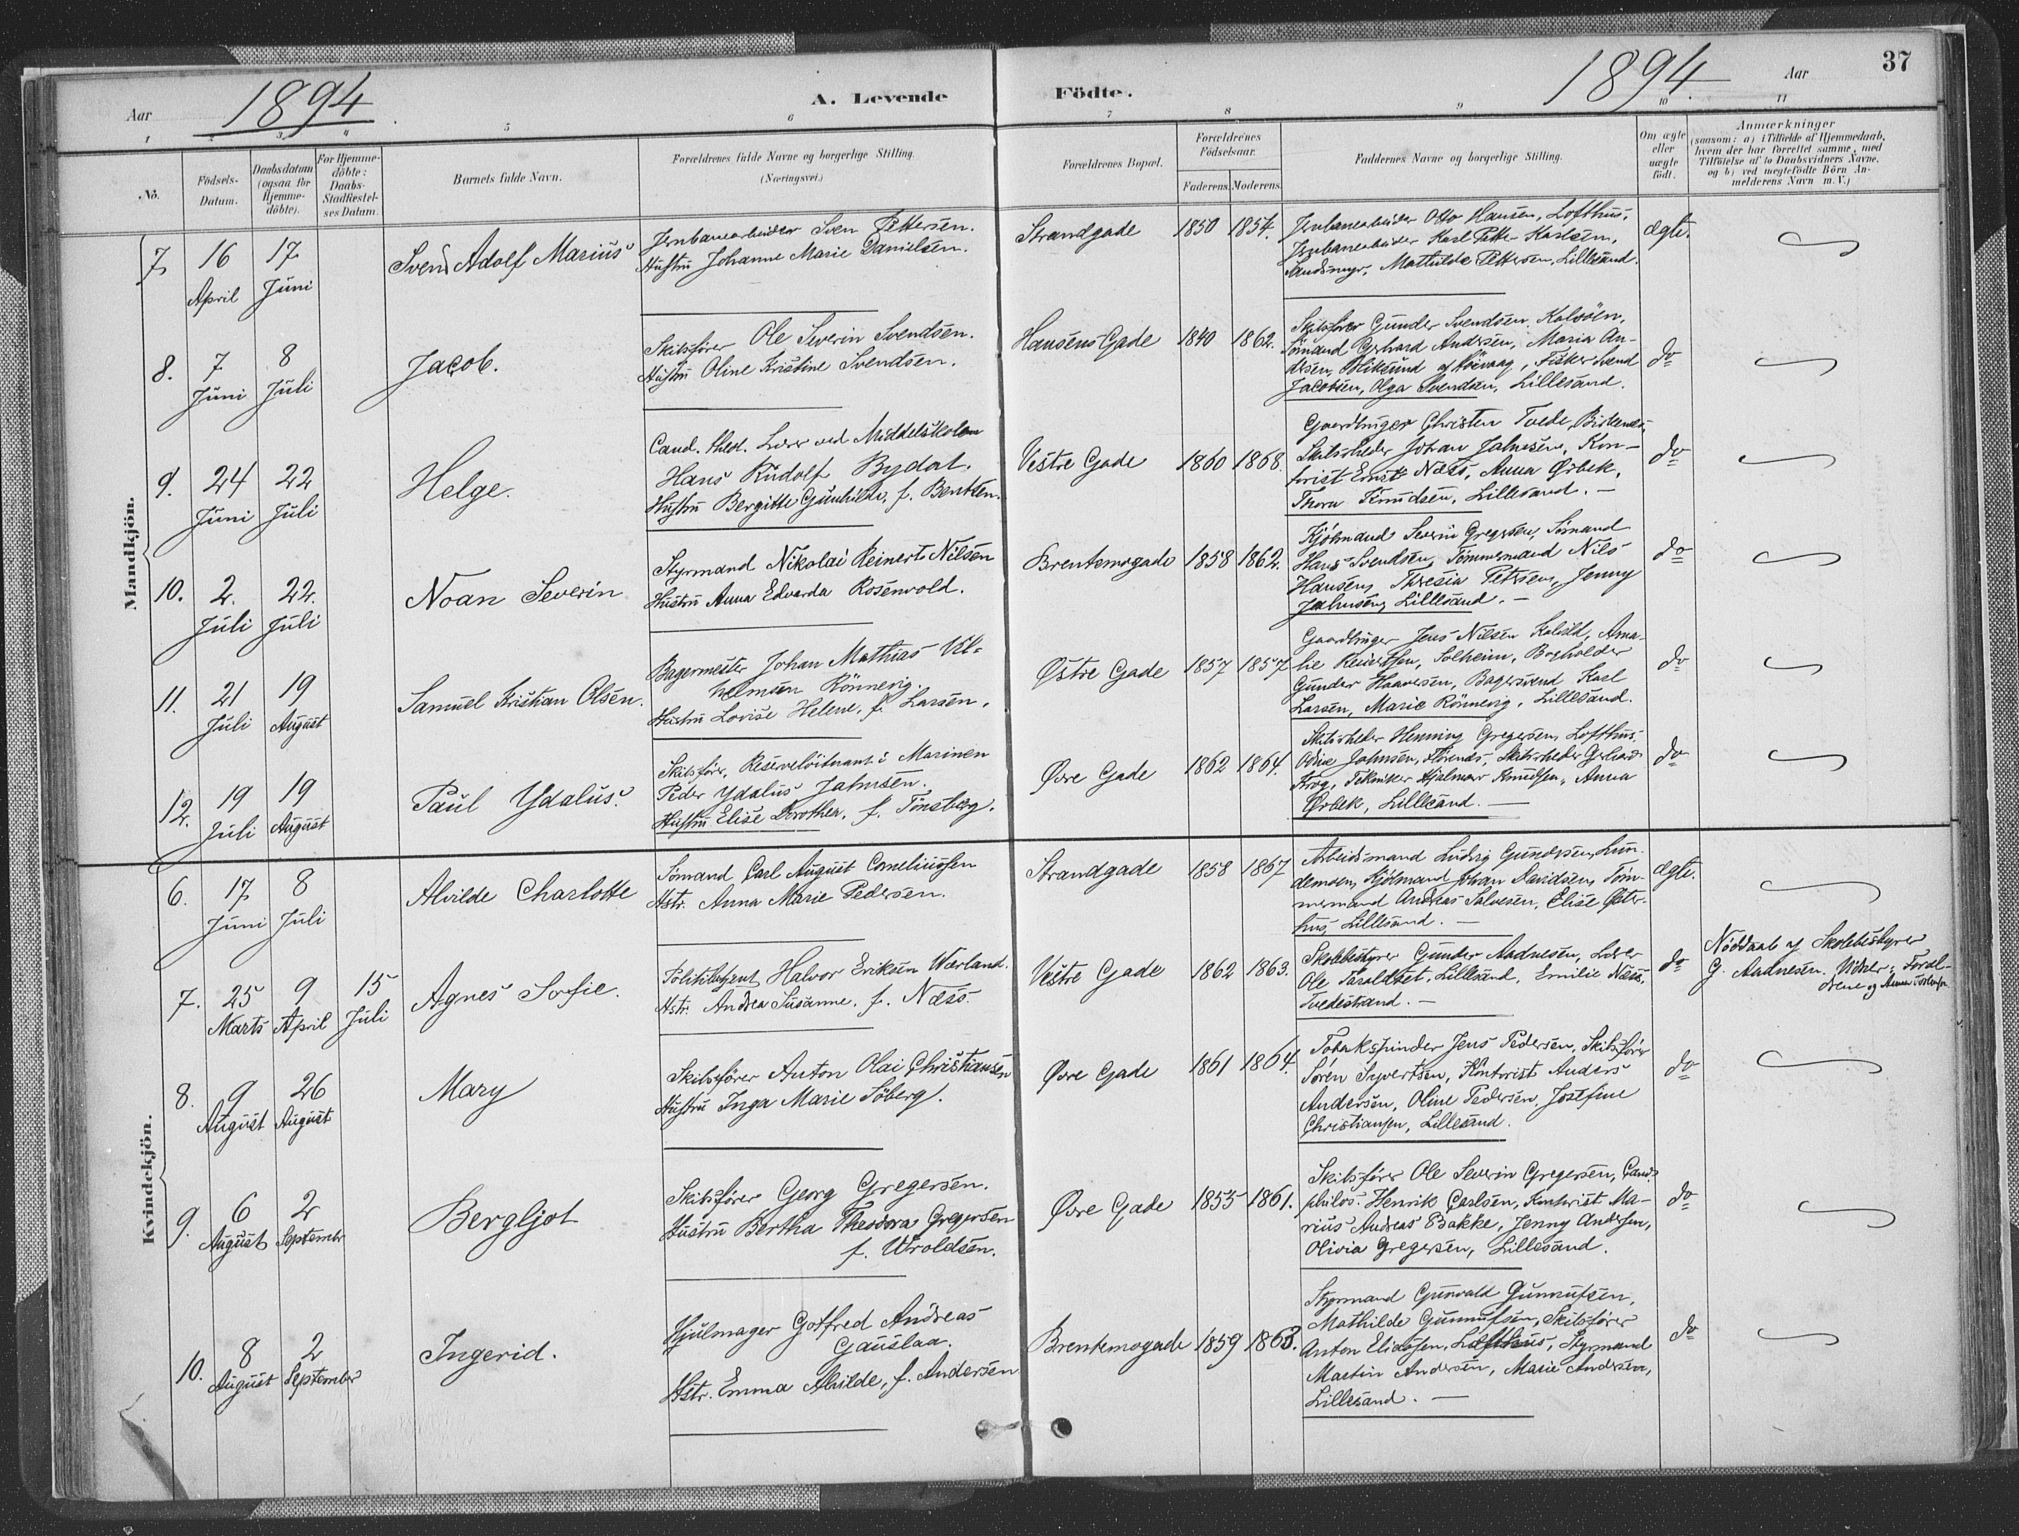 Aar 1894. A. Levende Födte. 1894. Aar 37
1 2 3 4 5 6 7 8 9 10 11
No.
Födsels-
Datum.
Daabsdatum
(ogsaa for
Hjemme-
döbte).
For Hjemme-
döbte:
Daabs-
Stadfæstel-
ses Datum.
Barnets fulde Navn.
Forældrenes fulde Navne og borgerlige Stilling.
(Næringsvei.)
Forældrenes Bopæl.
Forældrenes
Födselsaar.
Faderens. Moderens.
Faddernes Navne og borgerlige Stilling.
Om ægte
eller
uægte
födt.
Anmærkninger
(saasom: a) i Tilfælde af Hjemmedaab,
hvem der har forrettet samme, med
Tilföielse af to Daabsvidners Navne,
og b) ved uægtefödte Börn An-
melderens Navn m. V.)
Mandkjön.
7. 16 April 17 Juni
Svend Adolf Marius
Jernbanearbeider Sven Pettersen.
Hustru Johanne Marie Danielsen.
Strandgade 1850 1854.
Jernbanearbeider Otto Hansen, Lofthus,
Jernbanearbeider Karl Petter Karlsen,
Sandsmyr, Mathilde Pettersen, Lillesand.
ægte.
8. 7 Juni 8 Juli
Jacob.
Skibsfører Ole Severin Svendsen.
Hustru Oline Kristine Svendsen.
Hansens Gade 1840 1862.
Skibsfører Gunder Svendsen, Kalvöen,
Sömand Gerhard Andersen, Maria An-
dersen, Bliksund af Höivaag, Fisker Svend
Jacobsen, Olga Svendsen, Lillesand.
do
9. 24 Juni 22 Juli
Helge.
Cand. theol. Lærer ved Middelskolen
Hans Rudolf Bydal.
Hustru Bergitte Gunhilde, f. Bentsen.
Vestre Gade 1860 1868.
Gaardbruger Christen Tvede, Birkenes,
Skibsrheder Johan Jahnsen, Kon-
torist Ernst Næss, Anna Ørbek,
Thora Knudsen, Lillesand. —
do
10. 2. Juli 22. Juli
Noan Severin
Styrmand Nikolai Reinert Nilsen
Hustru Anna Edvarda Rosenvold.
Brentemogade 1858 1862.
Kjöbmand Severin Gregersen, Sömand
Hans Svendsen, Tömmermand Nils
Hansen, Theresia Petersen, Jenny
Jahnsen, Lillesand. —
do
11. 21 Juli 19 August
Samuel Kristian Olsen.
Bagermester Johan Mathias Vil-
helmsen Rönnevig.
Hustru Lovise Helene, f. Larsen.
Østre Gade 1857 1857
Gaardbruger Jens Nilsen Kalvild, Ama-
lie Reiersen, Solheim, Bogholder
Gunder Haavesen, Bagersvend Karl
Larsen, Marie Rönnevig, Lillesand.
do
12. 19 Juli 19 August
Paul Ydalus.
Skibsfører, Reserveløitnant i Marinen
Peder Ydalus Jahnsen.
Hustru Elise Dorothea, f. Tönsberg.
Øvre Gade 1862 1864.
Skibsrheder Henning Gregersen, Lofthus,
Odine Jahnsen, Skibsrheder Gerhard
Krog, Tekniker Hjalmar Knudsen, Anna
Ørbek, Lillesand. —
do
Kvindekjön.
6. 17 Juni 8 Juli
Alvilde Charlotte
Sömand Carl August Corneliussen
Hstr. Anna Marie Pedersen.
Strandgade 1858 1867
Arbeidsmand Ludvig Gundersen, Lun-
demoen, Kjöbmand Johan Davidsen, Töm-
mermand Andreas Salvesen, Elise Øster-
hus, Lillesand. —
ægte.
7. 25 Marts 9 April 15 Juli
Agnes Sofie.
Politibetjent Halvor Eriksen Værland.
Hstr. Andrea Susanne, f. Næss.
Vestre Gade 1862 1863.
Skolebestyrer Gunder Aadnesen, Lærer
Ole Taraldset, Lillesand, Emilie Næss,
Tvedestrand. —
do
Nöddaab af Skolebestyrer
G. Aadnesen. Vidner: Foræl-
drene og
8. 9 August 26 August
Mary
Skibsfører Anton Olai Christiansen
Hustru Inga Marie Söberg.
Øvre Gade 1861 1864.
Tobakspinder Jens Pedersen, Skibsfører
Sören Syvertsen, Kontorist Anders
Andersen, Oline Pedersen, Josefine
Christiansen, Lillesand.
do
9. 6 August 2 September
Bergljot
Skibsfører Georg Gregersen.
Hustru Bertha Theodora Gregersen
f. Wroldsen.
Øvre Gade 1855 1861.
Skibsfører Ole Severin Gregersen, Cand.
philos. Henrik Carlsen, Kontorist Ma-
rius Andreas Bakke, Jenny Andersen,
Olivia Gregersen, Lillesand.
do
10. 8 August 2 September
Ingerid.
Hjulmager Gotfred Andreas
Gauslaa.
Hstr. Emma Alvilde, f. Andersen
Brentemogade 1859 1863.
Styrmand Gunvald Gunnufsen,
Mathilde Gunnufsen, Skibsfører
Anton Eliassen, Lofthus, Styrmand
Martin Andersen, Marie Andersen,
Lillesand. —
do